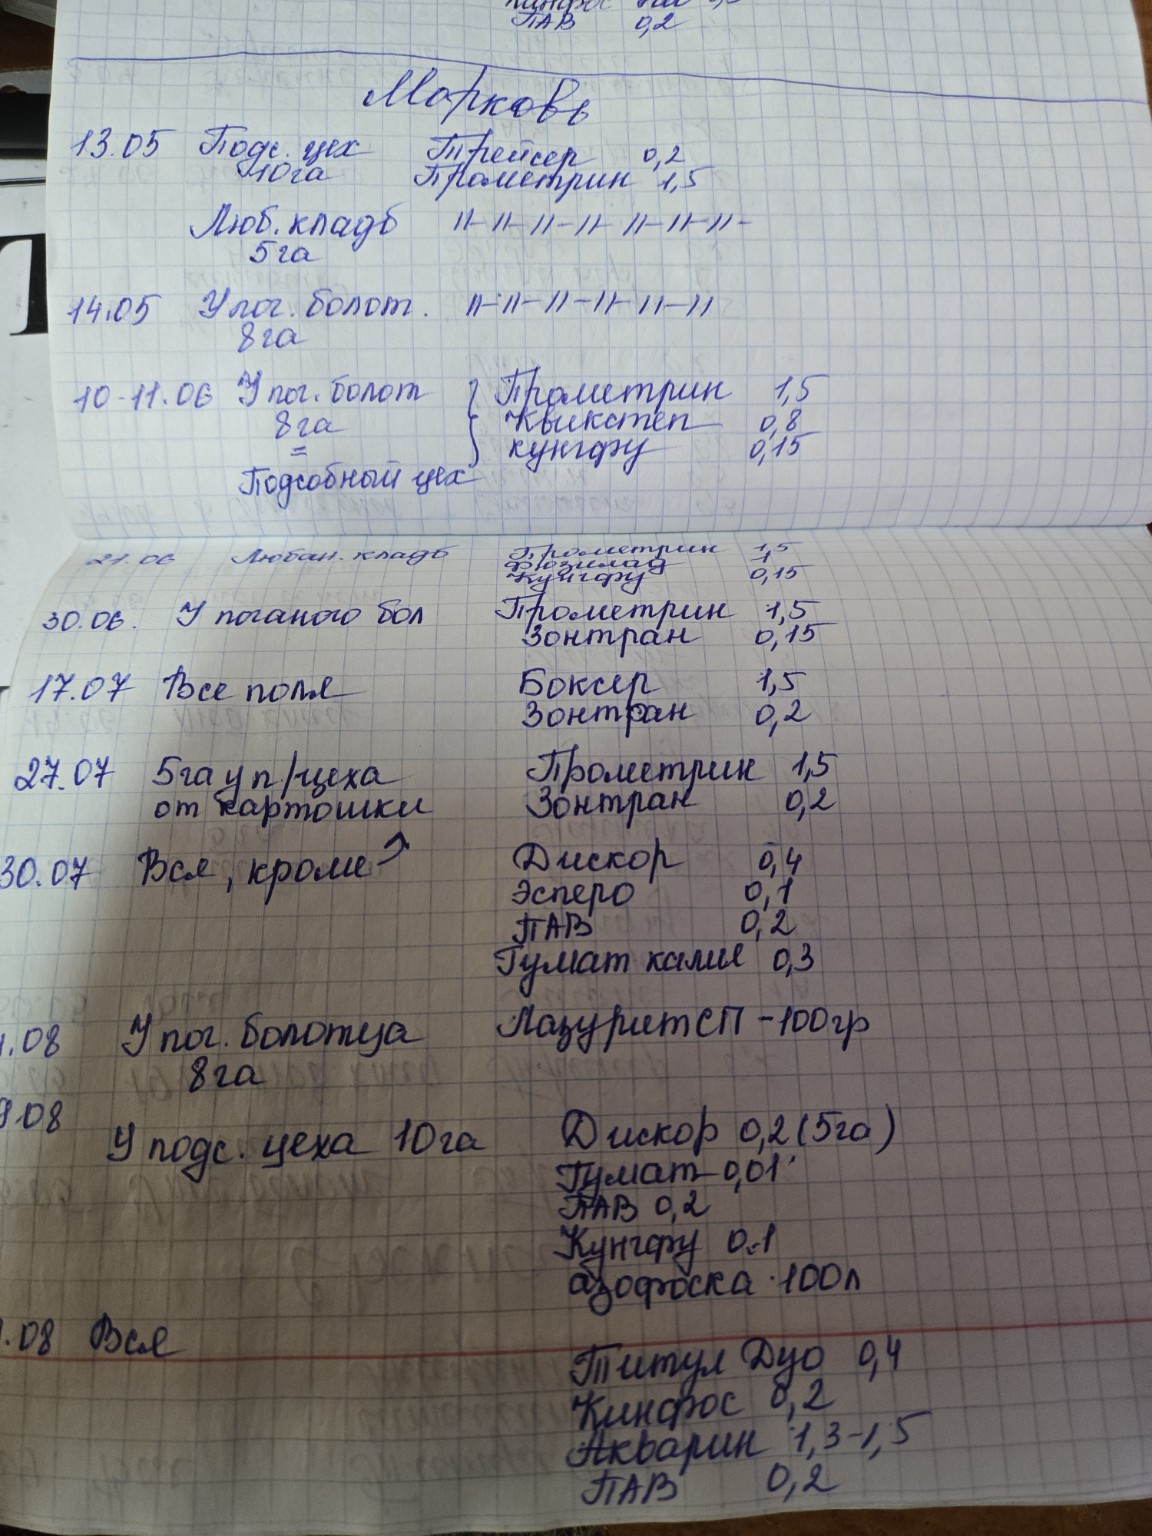 ПАВ 0,2
Морковь
13.05 Подс. цех Трейсер 0,2
10га Прометрин 1,5
Люб. кладб -//-//-//-//-//-//-//-
5га
14.05 У пог. болот. -//-//-//-//-//-//
8га
10-11.06 У пог. болот Прометрин 1,5
8га Квикстеп 0,8
Кунгфу 0,15
Подсобный цех
21.06 Любан. кладб Прометрин 1,5
Фюзилад 1
Кунгфу 0,15
30.06. У поганого бол Прометрин 1,5
Зонтран 0,15
17.07 Все поля Боксер 1,5
Зонтран 0,2
27.07 5га у п/цеха Прометрин 1,5
от картошки Зонтран 0,2
30.07 Вся, кроме Дискор 0,4
Эсперо 0,1
ПАВ 0,2
Гумат калия 0,3
.08 У пог. болотца Лазурит СП - 100гр
8га
9.08
У подс. цеха 10га Дискор 0,2 (5га)
Гумат 0,01
ПАВ 0,2
Кунгфу 0.1
азофоска 100л
.08 Вся
Титул Дуо 0,4
Кинфос 0,2
Акварин 1,3-1,5
ПАВ 0,2